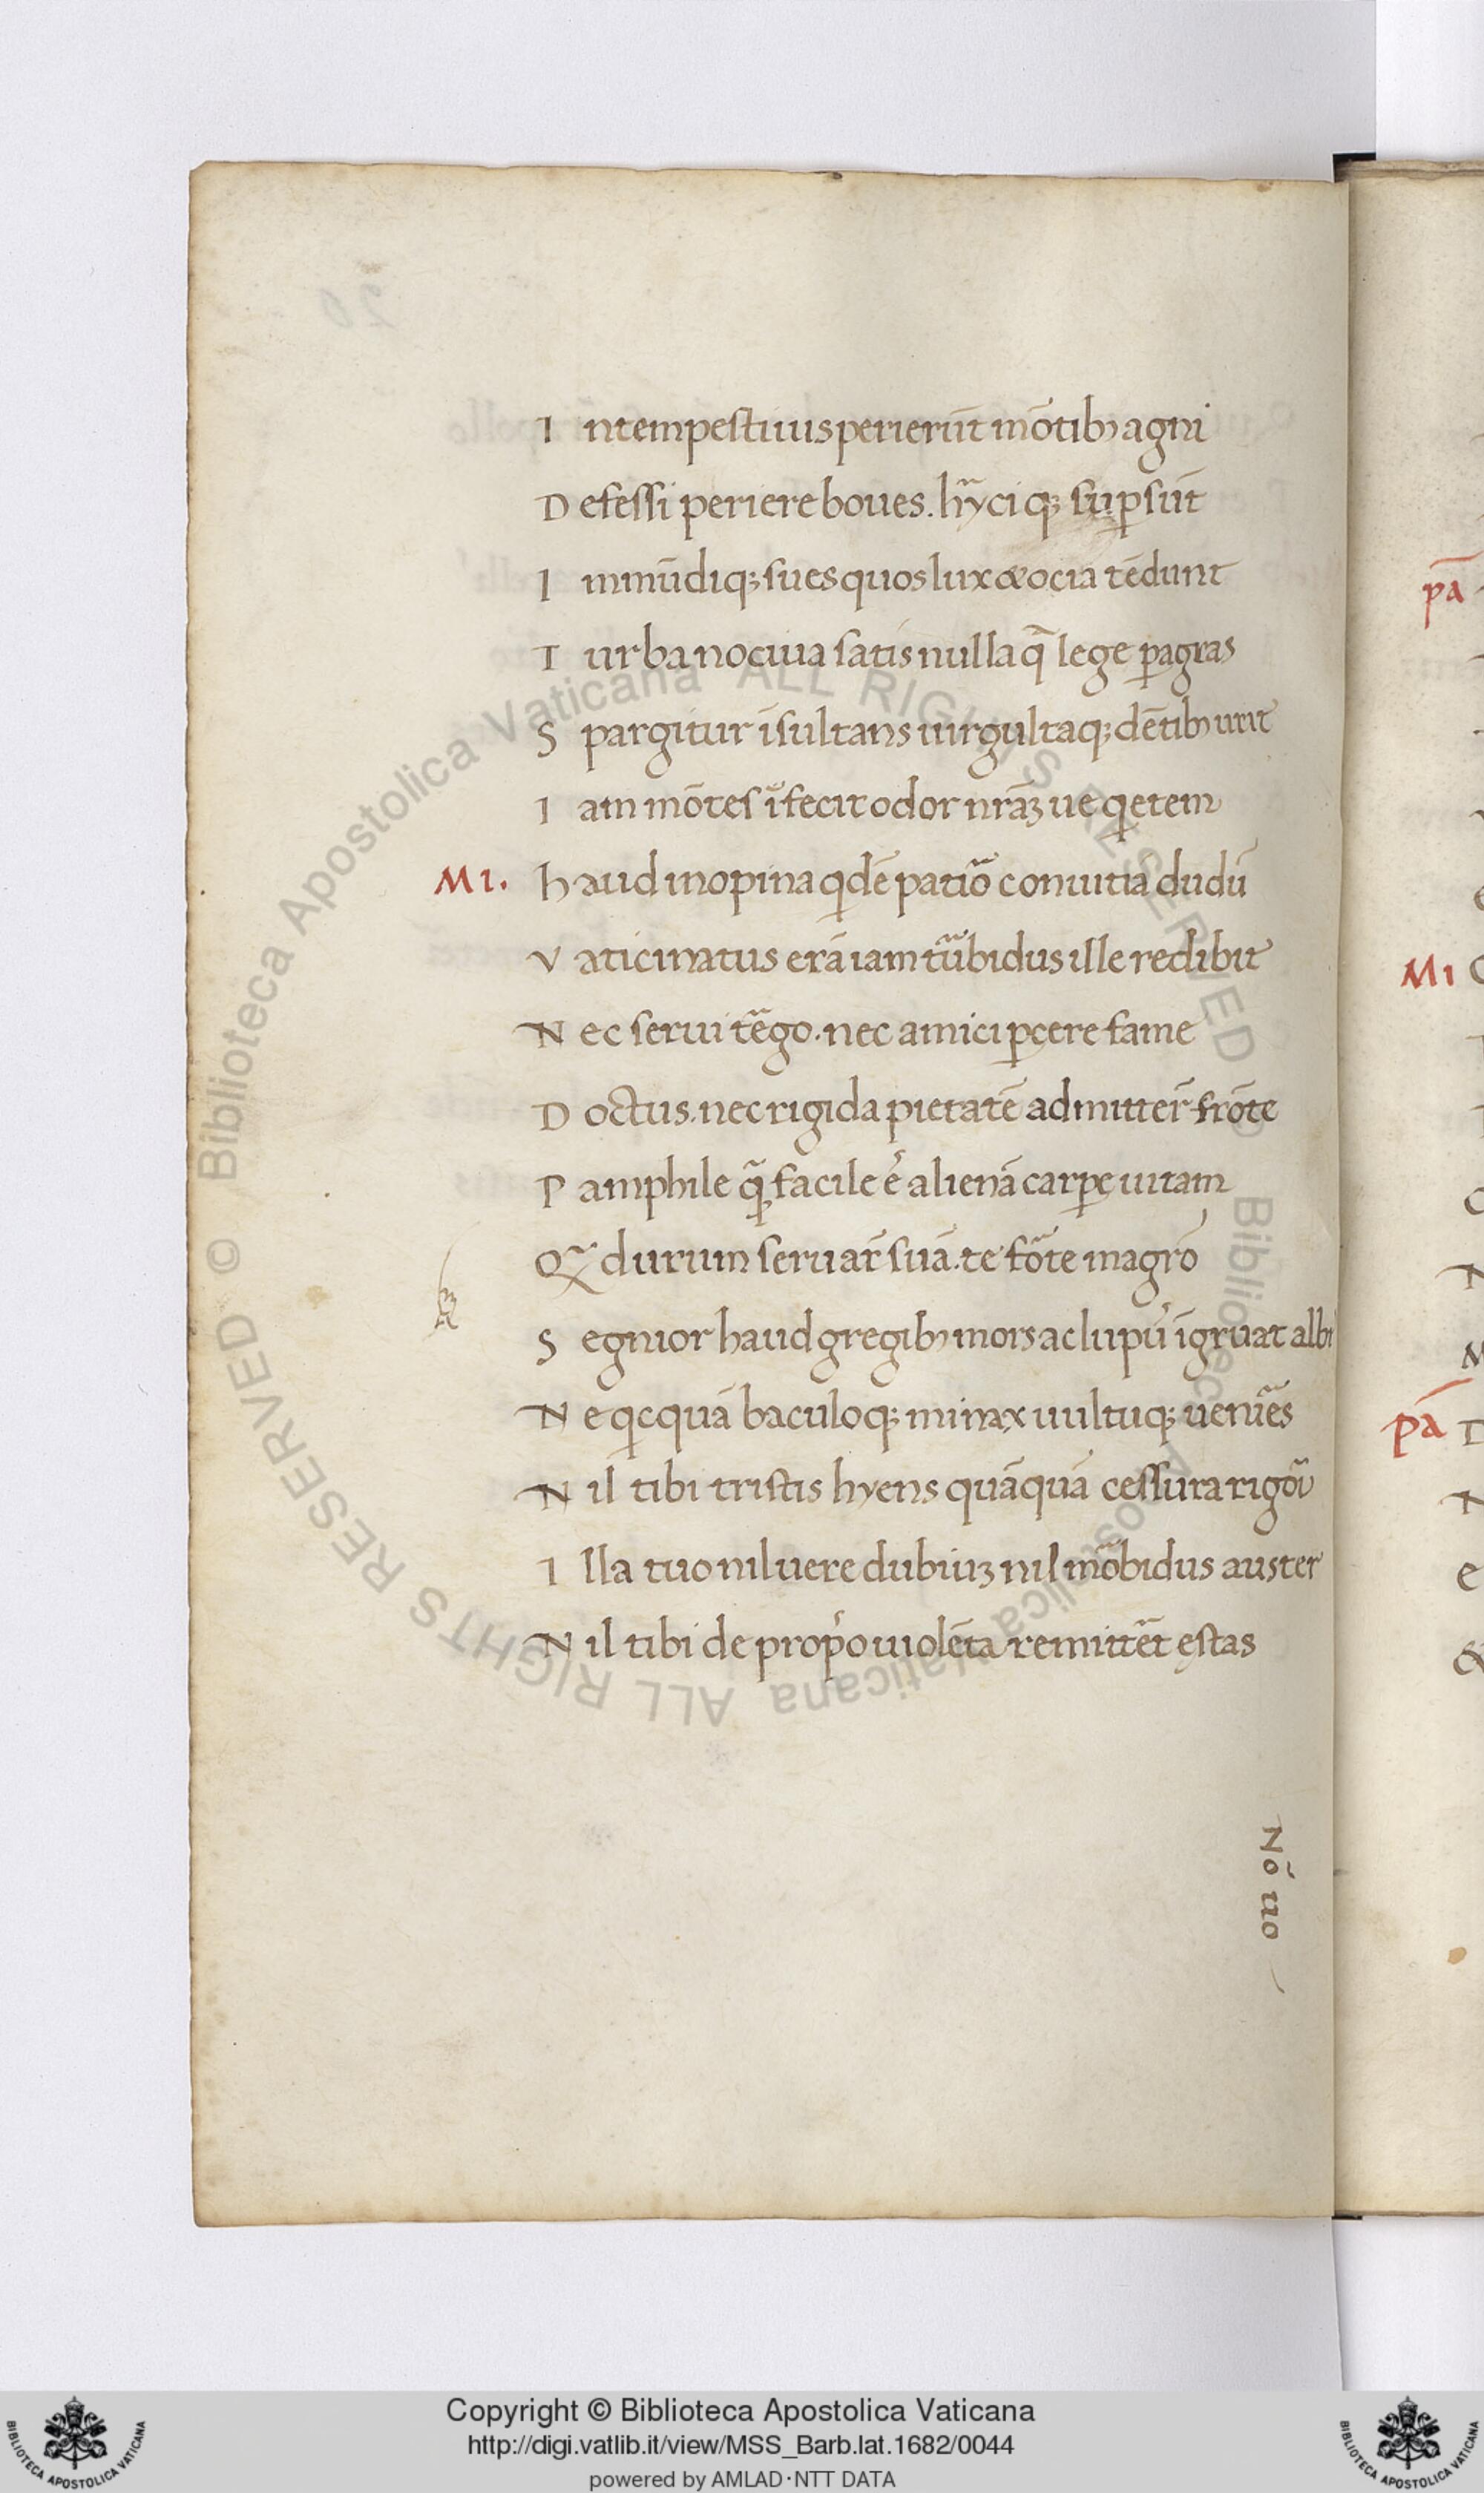 I ntempestiuus perierūt mōtibꝫ agni
D efessi periere boues. hy̅ciqꝫ suꝑsūt
I mmūdiqꝫ sues quos lux & ocia tēdunt
T urba nociua satis nullaq̄ lege ꝑagras
S pargitur īsultans uirgultaqꝫ dētibꝫ urit
I am mōtes īfecit odor nr̄āꝫue qetem
MI. h aud inopina qdē patio̅ conuitia dudū
V aticinatus erā iam tu̅bidus ille redibit
N ec serui te̅go. nec amici ꝑcere fame
D octus. nec rigida pietatē admitter̄ frōte
P amphile q̄ꝫ facile ē alienā carꝑe uitam
Qꝫ durum seruar̄ suā. te fo̅te magro
S egnior haud gregibꝫ mors ac lupū īgruat albi
N e qcquā baculoqꝫ minax uultuqꝫ uenies
N il tibi tristis hyens quāquā cessura rigoi
I lla tuo nil uere dubiuꝫ nil mo̅bidus auster
N il tibi de prop̄o uiolēta remittet ęstas
Nō uo
Copyright © Biblioteca Apostolica Vaticana
http://digi.vatlib.it/view/MSS_Barb.lat.1682/0044
powered by AMLAD·NTT DATA
pa
MI
pa
© Biblioteca Apostolica Vaticana ALL RIGHTS RESERVED
© Biblioteca Apostolica Vaticana ALL RIGHTS RESERVED
BIBLIOTECA APOSTOLICA VATICANA
BIBLIOTECA APOSTOLICA VATICANA